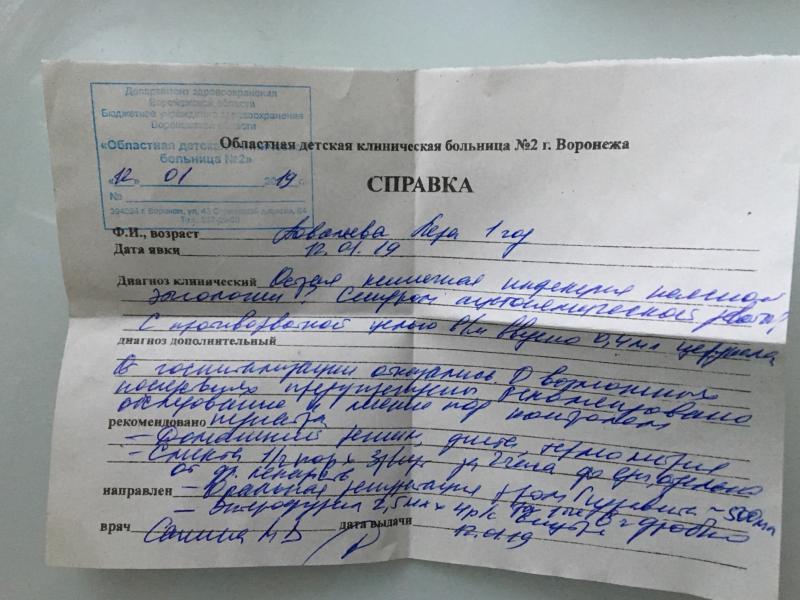 Департамент здравоохранения
Воронежской области
Бюджетное учреждение здравоохранения
Воронежской области
«Областная детская клиническая
больница №2»
«12» 01 2019 г.
№
394024 г. Воронеж, ул. 45 Стрелковой дивизии, 64
Областная детская клиническая больница №2 г. Воронежа
СПРАВКА
Ф.И., возраст Лера 1 год
Дата явки 12.01.19
Диагноз клинический Острая кишечная инфекция неясной
этиологии? Синдром ацетонемической рвоты?
С противорвотной целью в/м введено 0,4 мл церукала
диагноз дополнительный
От госпитализации отказались. О возможных
последствиях предупреждены. Рекомендовано
обследование и лечение под контролем
рекомендовано педиатра
– Домашний режим, диета, термометрия
– Смекта 1/2 пор х 3 р/д за 1 час до еды отдельно
от др. лекарств
направлен – Оральная регидратация ~ 500 мл
– Энтерофурил 2,5 мл х 4 р/с дробно
врач дата выдачи 12.01.19